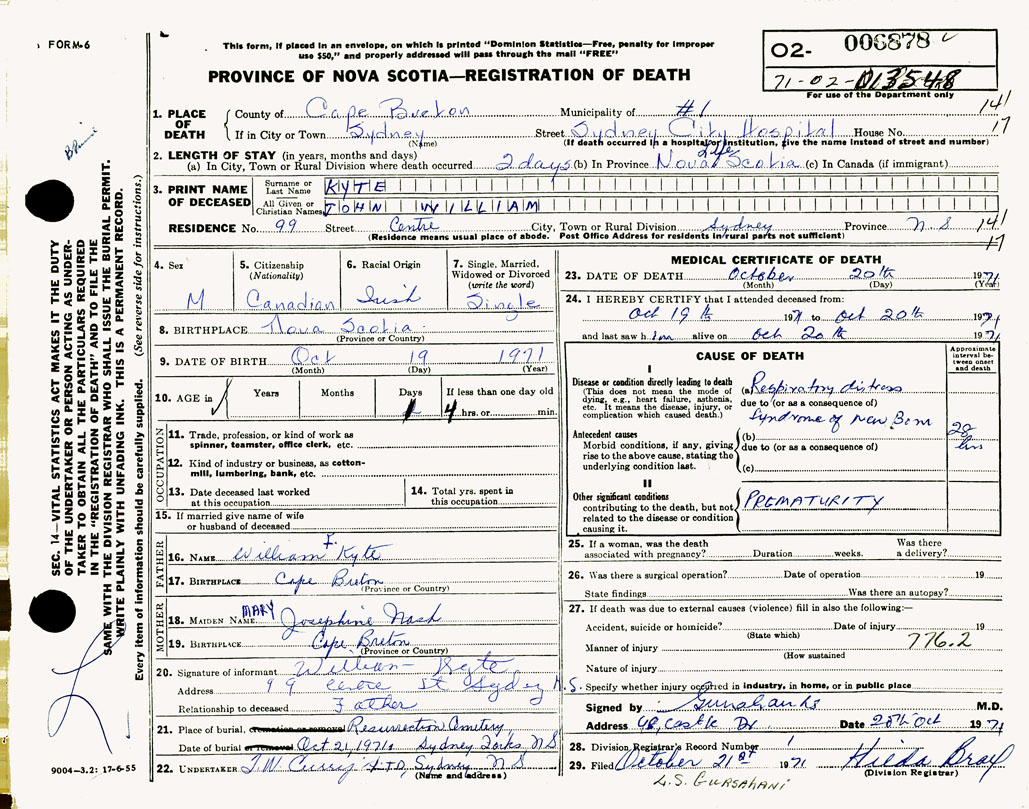 FORM-6
This form, if placed in an envelope, on which is printed "Dominion Statistics—Free, penalty for improper
use $50," and properly addressed will pass through the mail "FREE"
PROVINCE OF NOVA SCOTIA—REGISTRATION OF DEATH
O2- 006878
71-02-013548
For use of the Department only
1. PLACE OF DEATH
County of Cape Breton Municipality of #1 141
If in City or Town Sydney Street Sydney City Hospital House No. 17
(Name) (If death occurred in a hospital or institution, give the name instead of street and number)
2. LENGTH OF STAY (in years, months and days) Life
(a) In City, Town or Rural Division where death occurred 2 days (b) In Province Nova Scotia (c) In Canada (if immigrant)
3. PRINT NAME OF DECEASED
Surname or Last Name KYTE
All Given or Christian Names JOHN WILLIAM
RESIDENCE No. 99 Street Centre City, Town or Rural Division Sydney Province N S 141
(Residence means usual place of abode. Post Office Address for residents in rural parts not sufficient) 17
4. Sex M
5. Citizenship (Nationality) Canadian
6. Racial Origin Irish
7. Single, Married, Widowed or Divorced (write the word) Single
8. BIRTHPLACE Nova Scotia
(Province or Country)
9. DATE OF BIRTH Oct 19 1971
(Month) (Day) (Year)
10. AGE in Years Months Days 1 If less than one day old 4 hrs. or min.
OCCUPATION
11. Trade, profession, or kind of work as
spinner, teamster, office clerk, etc.
12. Kind of industry or business, as cotton-
mill, lumbering, bank, etc.
13. Date deceased last worked
at this occupation
14. Total yrs. spent in
this occupation
15. If married give name of wife
or husband of deceased
FATHER
16. NAME William F. Kyte
17. BIRTHPLACE Cape Breton
(Province or Country)
MOTHER
18. MAIDEN NAME MARY Josephine Nash
19. BIRTHPLACE Cape Breton
(Province or Country)
20. Signature of informant William Kyte
Address 99 Centre St Sydney N.S.
Relationship to deceased Father
21. Place of burial, cremation or removal Resurrection Cemetery
Date of burial or removal Oct 21, 1971 Sydney Forks, N S
22. UNDERTAKER T.W. Curry LTD, Sydney N S
(Name and address)
MEDICAL CERTIFICATE OF DEATH
23. DATE OF DEATH October 20th 1971
(Month) (Day) (Year)
24. I HEREBY CERTIFY that I attended deceased from:
Oct 19th 1971 to Oct 20th 1971
and last saw him alive on Oct 20th 1971
CAUSE OF DEATH
Approximate interval between onset and death
I
Disease or condition directly leading to death
(This does not mean the mode of
dying, e.g., heart failure, asthenia,
etc. It means the disease, injury, or
complication which caused death.)
(a) Respiratory distress
due to (or as a consequence of)
Syndrome of new Born
28 hrs
Antecedent causes
Morbid conditions, if any, giving
rise to the above cause, stating the
underlying condition last.
(b)
due to (or as a consequence of)
(c)
II
Other significant conditions
contributing to the death, but not
related to the disease or condition
causing it.
PREMATURITY
25. If a woman, was the death
associated with pregnancy? Duration weeks. Was there a delivery?
26. Was there a surgical operation? Date of operation 19
State findings Was there an autopsy?
27. If death was due to external causes (violence) fill in also the following:—
Accident, suicide or homicide? Date of injury 19
(State which) 776.2
Manner of injury
(How sustained
Nature of injury
Specify whether injury occurred in industry, in home, or in public place
Signed by M.D.
Address Date 20th Oct 1971
28. Division Registrar's Record Number
29. Filed October 21st 1971 Hilda
(Division Registrar)
L.S. GURSAHANI
SEC. 14—VITAL STATISTICS ACT MAKES IT THE DUTY
OF THE UNDERTAKER OR PERSON ACTING AS UNDER-
TAKER TO OBTAIN ALL THE PARTICULARS REQUIRED
IN THE "REGISTRATION OF DEATH" AND TO FILE THE
SAME WITH THE DIVISION REGISTRAR WHO SHALL ISSUE THE BURIAL PERMIT.
WRITE PLAINLY WITH UNFADING INK. THIS IS A PERMANENT RECORD.
Every item of information should be carefully supplied. (See reverse side for instructions.)
9004—3.2: 17-6-55